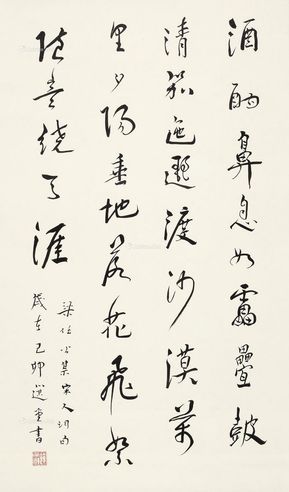 酒酣鼻息如靁疊皷
清笳迤邐渡沙漠萬
里夕陽垂地落花飛絮
隨意繞天涯
梁任公集宋人詞句
歲在己卯選堂書